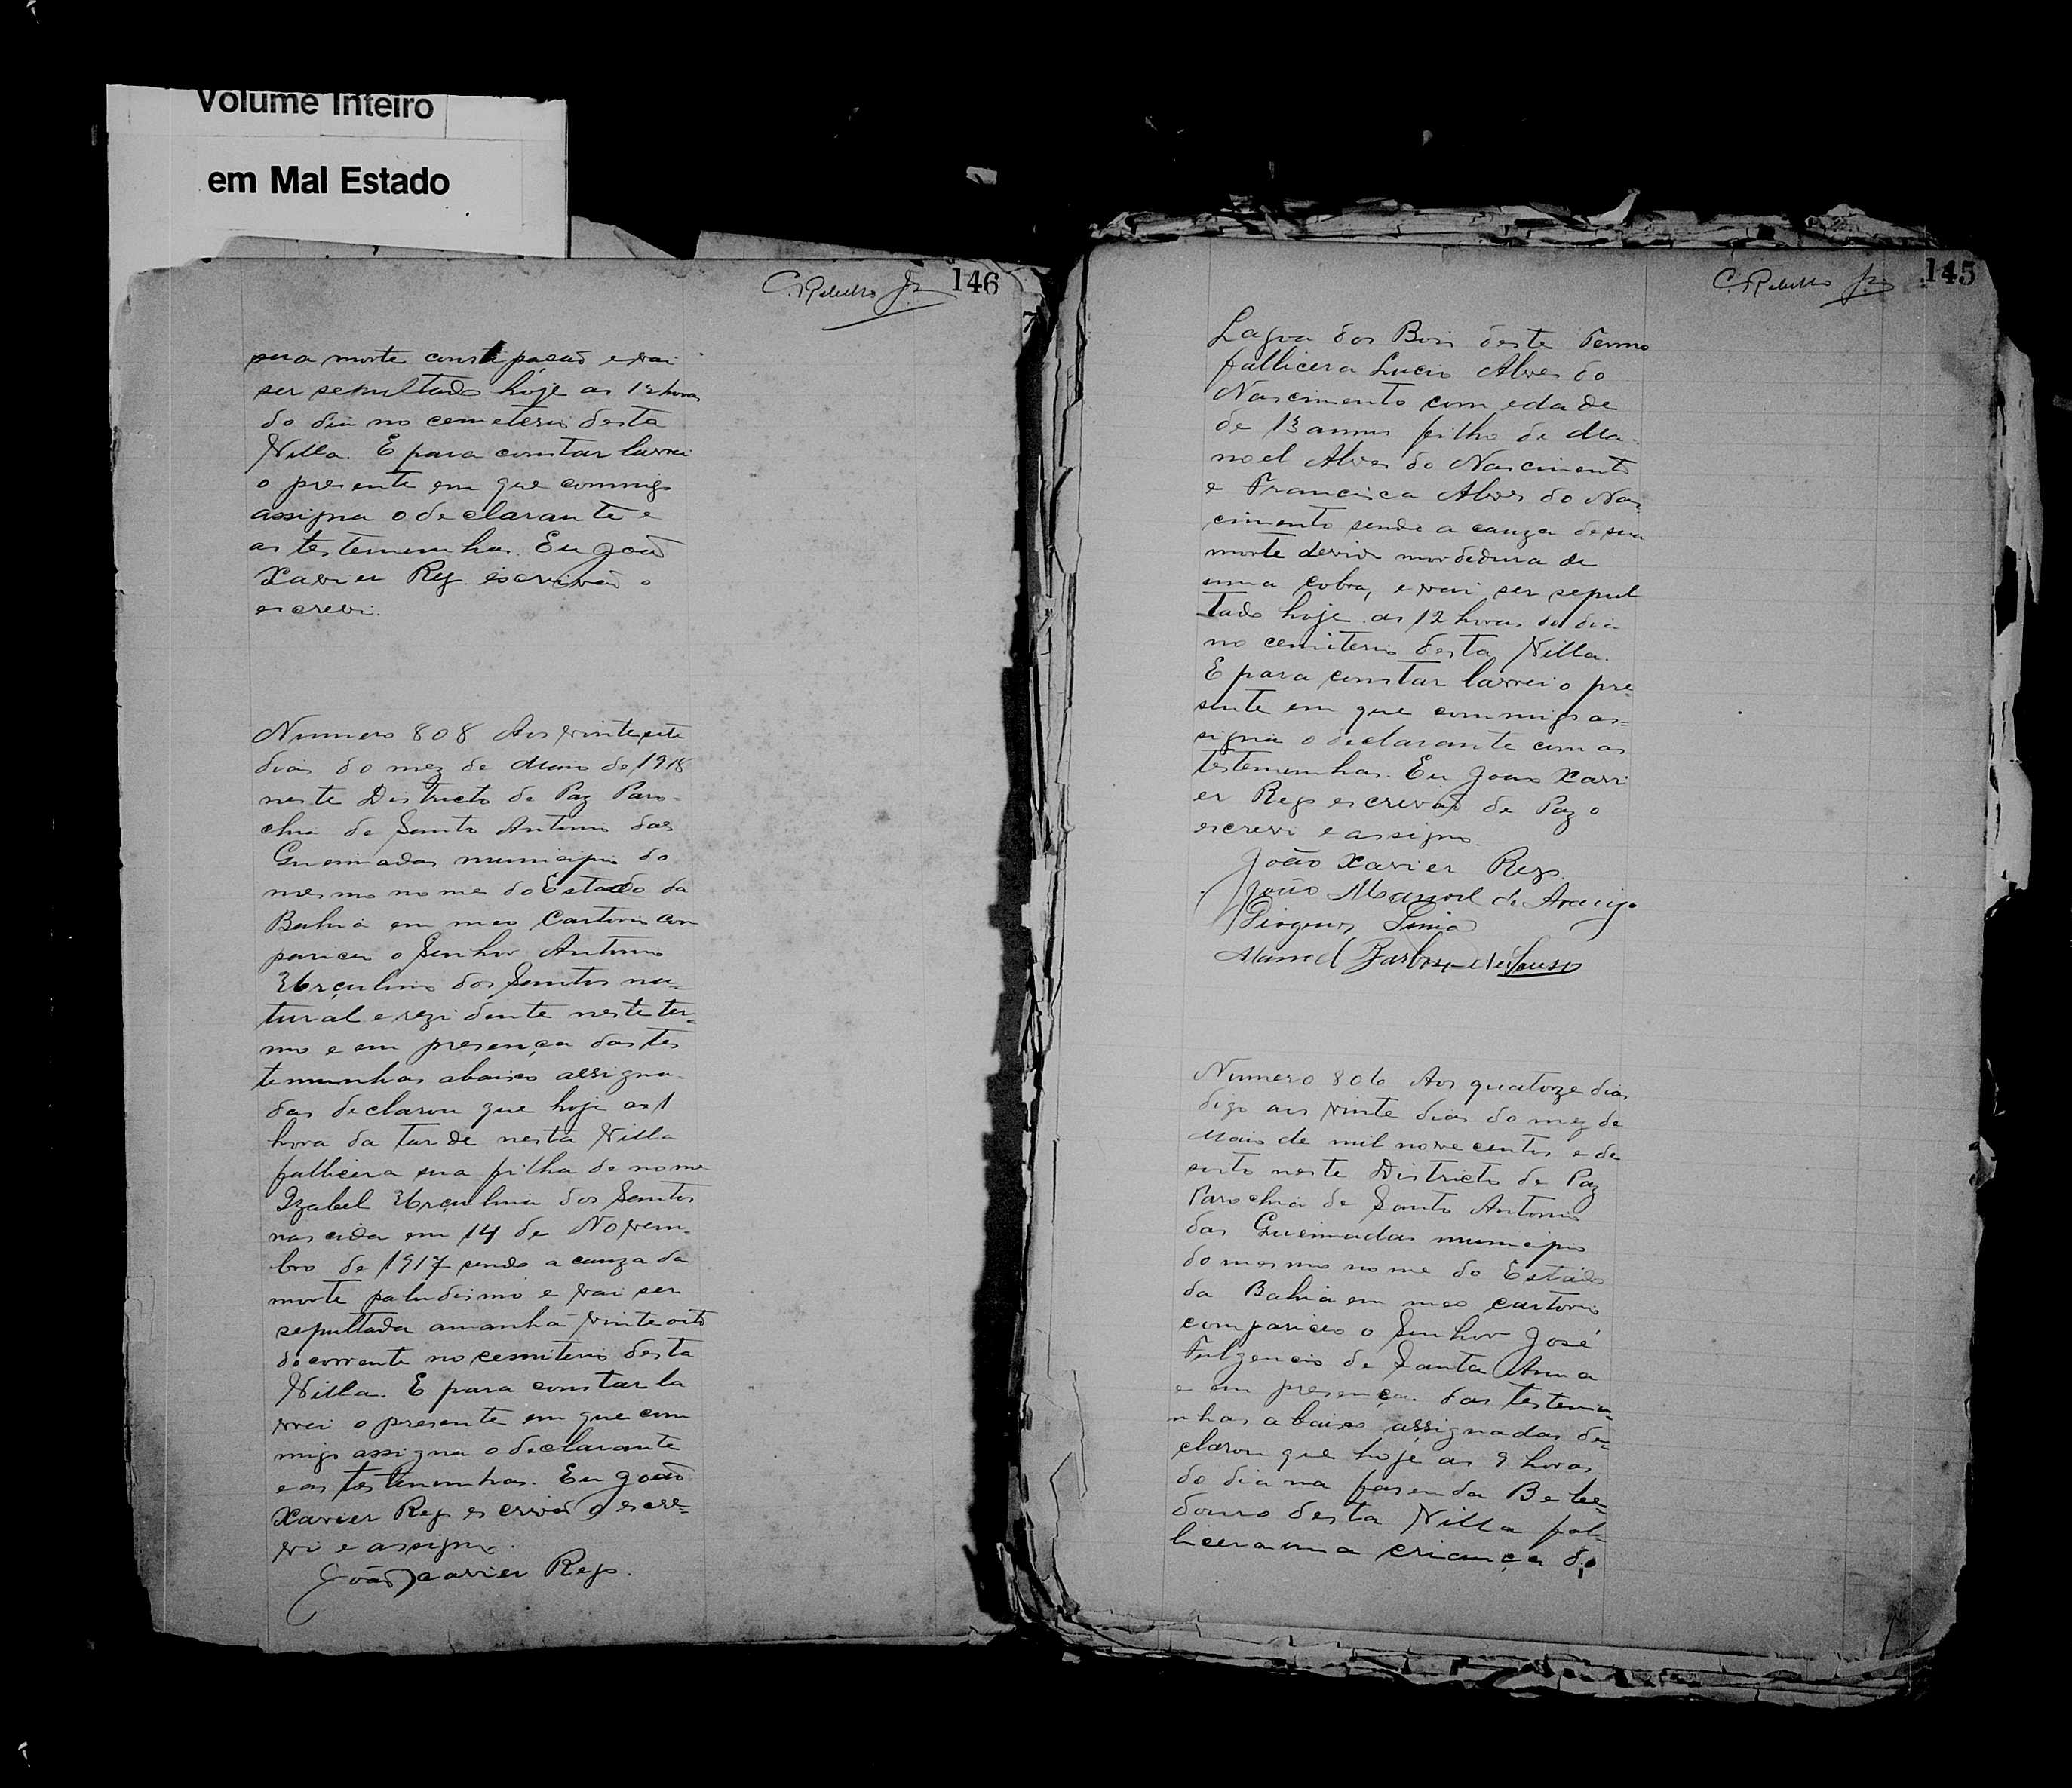 Volume Inteiro
em Mal Estado
C. Rabello Jr 146
sua morte constipasão e vai
ser sepultado hoje as 12 horas
do dia no cemeterio desta
Villa. E para constar lavrei
o presente em que commigo
assigna o declarante e
as testemunhas. Eu João
Xavier Rego escrivão o
escrevi.
Numero 808 Aos vinte sete
dias do mez de Maio de 1918
neste Districto de Paz Paro-
chia de Santo Antonio das
Queimadas municipio do
mesmo nome do Estado da
Bahia em meo Cartorio com
pariceu o Senhor Antonio
Urçulino dos Santos na-
tural e rezidente neste ter-
mo e em presença das tes
temunhas abaixo assigna-
das declarou que hoje as 1
hora da tarde nesta Villa
fallicera sua filha de nome
Izabel Urçulina dos Santos
nascida em 14 de Novem-
bro de 1917 sendo a cauza da
morte paludismo e vai ser
sepultada amanhã vinte oito
do corrente no cemiterio desta
Villa. E para constar la
vrei o presente em que com
migo assigna o declarante
e as testemunhas. Eu João
Xavier Rego escrivão o escre-
vi e assigno.
João Xavier Rego.
C. Rabello Jr 145
Lagoa dos Bois deste Termo
fallicera Lucio Alves do
Nascimento com edade
de 13 annos filho de Ma-
noel Alves do Nascimento
e Francisca Alves do Nas-
cimento sendo a cauza de sua
morte devido mordedura de
uma cobra, e vai ser sepul
tado hoje as 12 horas do dia
no cemiterio desta Villa.
E para constar lavrei o pre
sente em que commigo as=
signa o declarante com as
testemunhas. Eu João Xavi
er Rego escrivão de Paz o
escrevi e assigno.
João Xavier Rego.
João Manoel de Araujo
Diogenes
Manoel Barbosa de Souza
Numero 806 Aos quatorze dias
digo aos vinte dias do mez de
Maio de mil nove centos e de
soito neste Districto de Paz
Parochia de Santo Antonio
das Queimadas municipio
do mesmo nome do Estado
da Bahia em meo cartorio
compariceo o Senhor José
Fulgencio de Santa Anna
e em presença das testemu-
nhas abaixo assignadas de-
clarou que hoje as 9 horas
do dia na fasenda Bebe-
douro desta Villa fal-
licera uma criança do